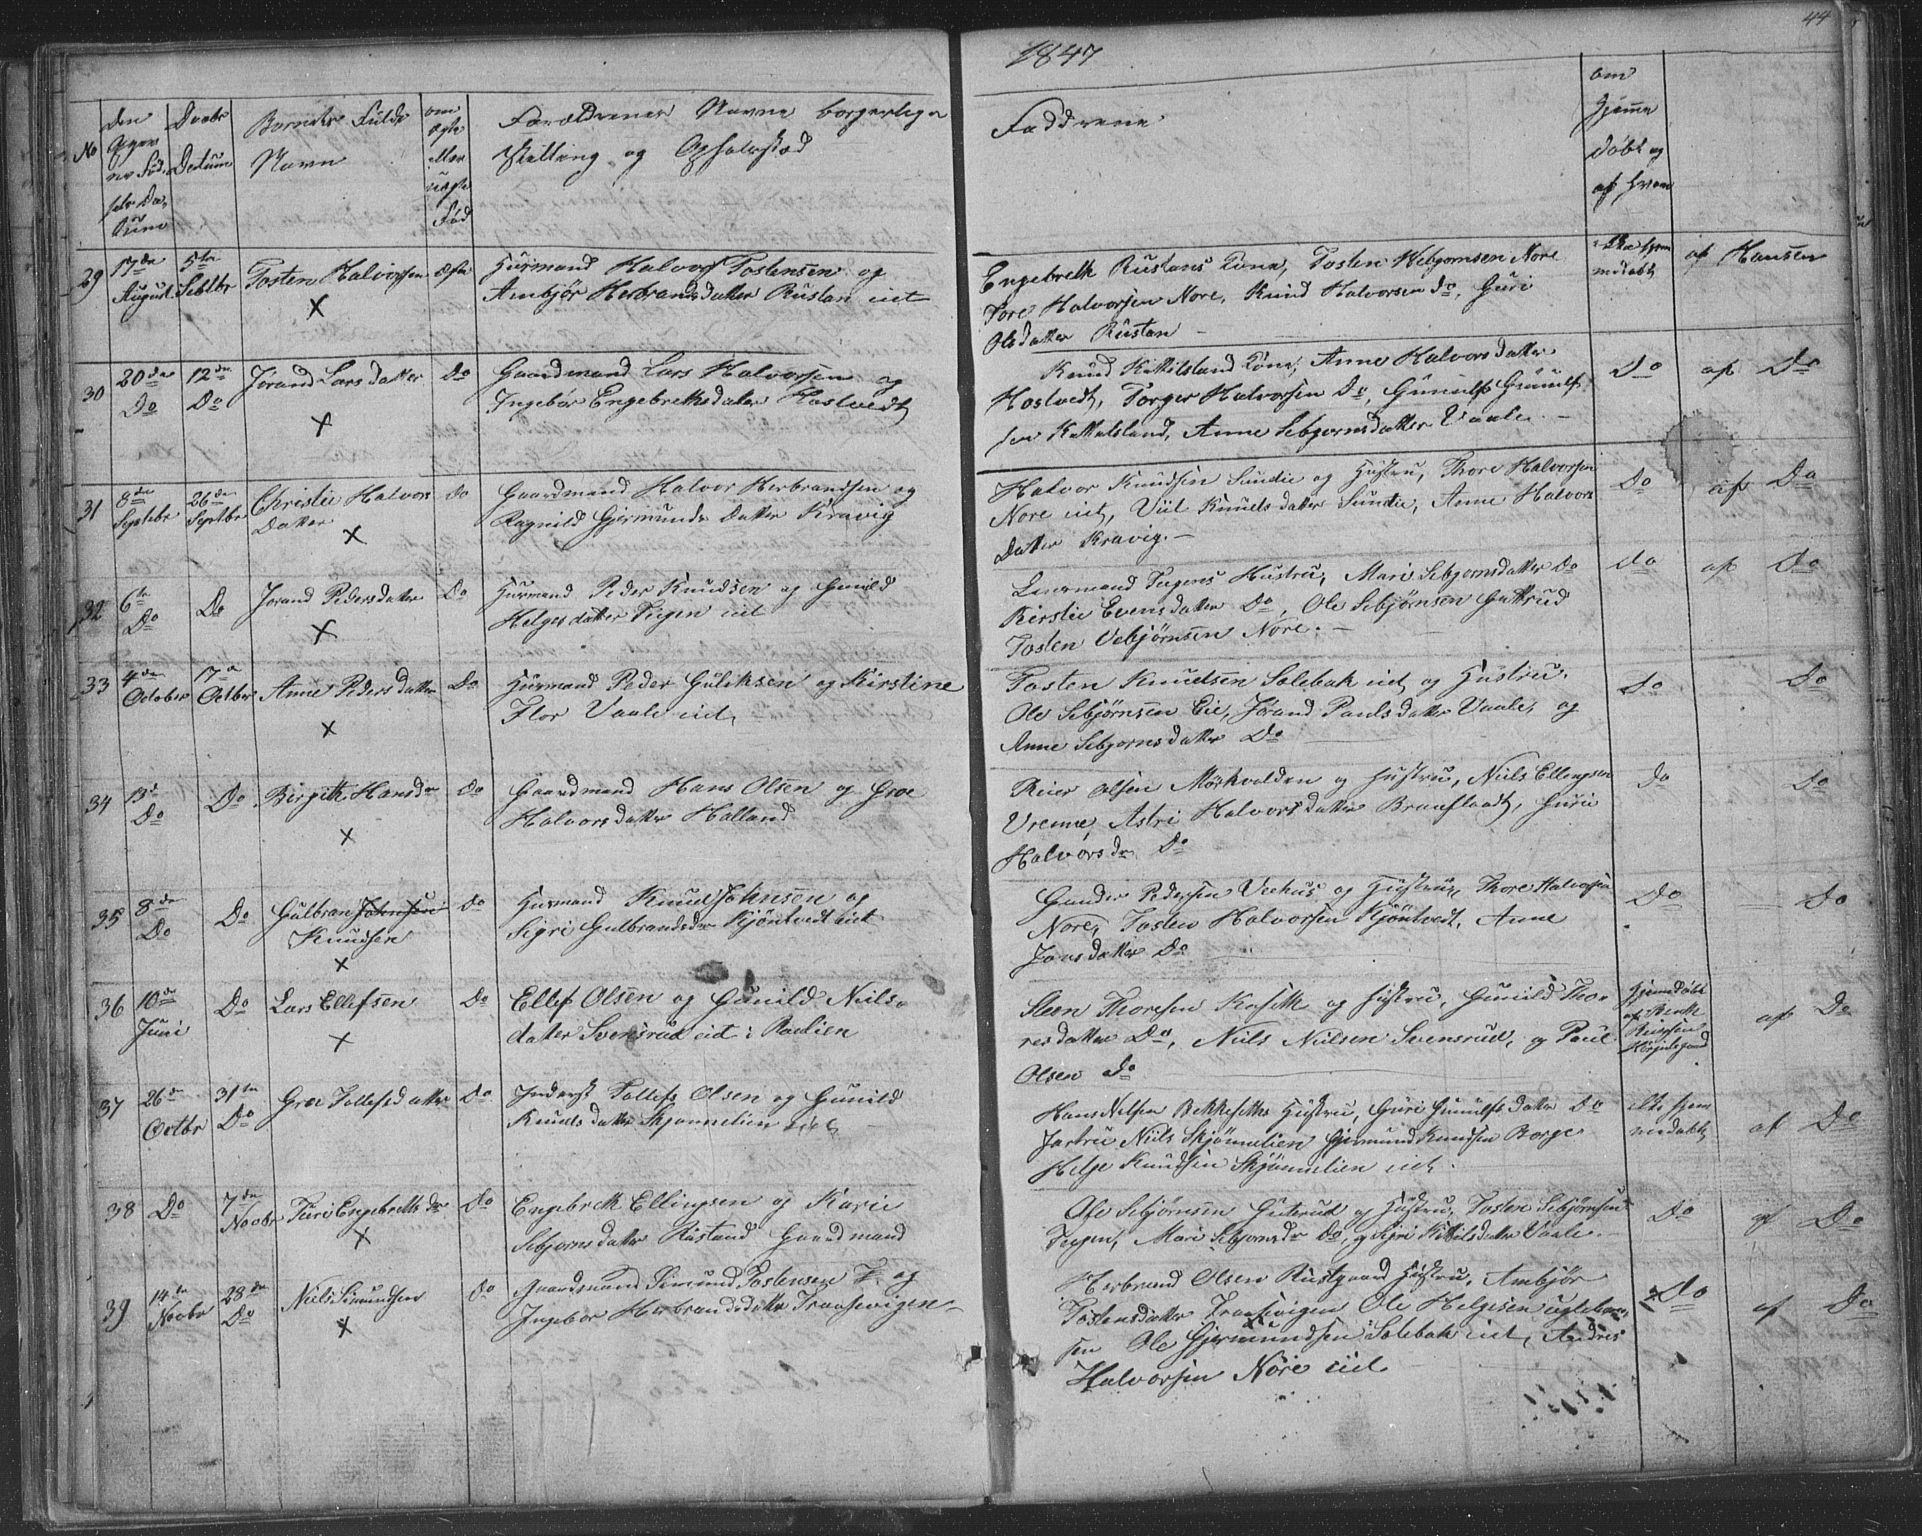 44
1847
No
den
Dato
Dødsels
Daabs
Datum
Barnets Fulde
Navn
om
ægte
eller
uægte
Fød
Forældrenes Navne borgerlige
Stilling og Opholdssted
Faddrene
om
hjemme
døbt og
af hvem
29
17de
August
5te
Septbr
Tosten Halvorsen
X
ægte
Huusmand Halvor Tostensen og
Ambjør Herbrandsdatter Rustan eiet
Engebreth Rustans Kone, Tosten Webjørnsen Nore
Tore Halvorsen Nore, Knud Halvorsen Do, Guri
Olsdatter Rustan
medabt
af Hansen
30
20de
Do
12de
Do
Jorand Larsdatter
X
Do
Gaardmand Lars Halvorsen og
Ingebør Engebrethsdatter Hostvedt
Knud Kittilsland Kone, Anne Halvorsdatter
Hostvedt, Torger Halvorsen Do, Gunulf Gunulf
sen Kittilsland, Anne Sebjornsdatter Vaale
Do
af Do
31
8de
Septebr
26de
Septbr
Christie Halvors
Datter
X
Do
Gaardmand Halvor Herbrandsen og
Ragnild Gjermunds Datter Kravig
Halvor Knudsen Sundie og Hustru, Thore Halvorsen
Nore eiet, Viil Knudsdatter Sundie, Anne Halvors
Datter Kravig
Do
af Do
32
6te
Do
Do
Jorand Pedersdatter
X
Do
Huusmand Peder Knudsen og Gunild
Helgesdatter Teigen eiet
Leiermand Teigens Hustru, Mari Sebjornsdatter Do
Kirstie Evensdatter Do, Ole Sebjørnsen Guttrud
Tosten Vebjørnsen Nore
do
af Do
33
4de
October
17de
Octbr
Anne Pedersdatter
X
Do
Huusmand Peder Guliksen og Kirstine
Flor Vaale eiet
Tosten Knudsen Solebak eiet og Hustru
Ole Sebjørnsen Eie, Jørand Paulsdatter Vaale, og
Anne Sebjornsdatter Do
Do
Do
34
13de
Do
Do
Birgith Hansdr
X
Do
Gaardmand Hans Olsen og Groe
Halvorsdatter Halland
Reier Olsen Mørkvolden og Hustru, Niels Ellingsen
Vrenne Astri Halvorsdatter Braastaadt, Guri
Halvorsdr Do
Do
Do
35
8de
Do
Do
Gulbran Johnsen
Knudsen
X
do
Huusmand Knud Johnsen og
Sigri Gulbrandsdr Kjøntvedt eiet
Gunder Pedersen Veehus og Hustrue, Thore Halvorsen
Nore, Tosten Halvorsen Kjøntvedt, Anne
Jonsdatter Do
Do
Do
36
10de
Juni
Do
Lars Ellefsen
X
Do
Ellef Olsen og Gunild Niels
datter Svensrud eiet i Rollien
Steen Thoresen Kafitte og Hustru, Gunild Tho
resdatter Do, Niels Nielsen Svensrud, og Paul
Olsen do
Hjemmedøbt
af
af Do
37
26de
Octbr
31te
Do
Groe Tollefsdatter
Do
Inderst Tollef Olsen og Gunild
Knudsdatter Skjønnelien eiet
Hans Nilsen Bekkesettes Hustru, Guri Gunulfsdatter Do
Jartru Niils Skjønnelien Gjermund Knudsen Borge
Helge Knudsen Skjønnelien eiet
ikke hjem
medabt
af Do
38
Do
7de
Novbr
Turi Engebrethsdr
X
Do
Engebreth Ellingsen og Karie
Sebjornsdatter Rustand Gaardmand
Ole Sebjørnsen Guterud og Hustru, Tosten Sebjørnsen
Teigen, Mari Sebjornsdr Do, og Sigri Kittilsdatter Vaale
Do
af Do
39
14de
Novbr
28de
Do
Niels Simundsen
X
do
Gaardmand Simund Tostensen T. og
Ingebor Herbrandsdatter Traasevigen
Herbrand Olsen Rustgaard Hustru, Ambjør
Tostensdatter Traasevigen Ole Helgesen
sen Ole Gjermundsen Solebak eiet, Andres
Halvorsen Nore eiet
Do
af Do